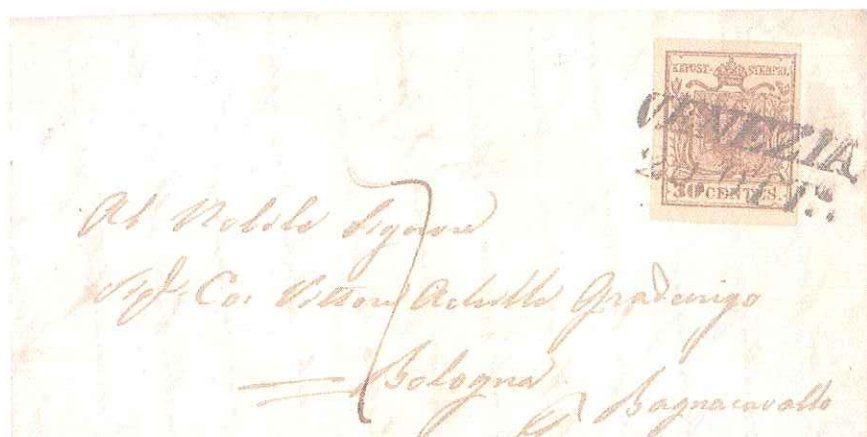 KKPOST-STEMPEL
VENEZIA
30 CENTES.
Al Nobile Signore
Sigr. Co: Vettore Achille Gradenigo
Bologna
Bagnacavallo